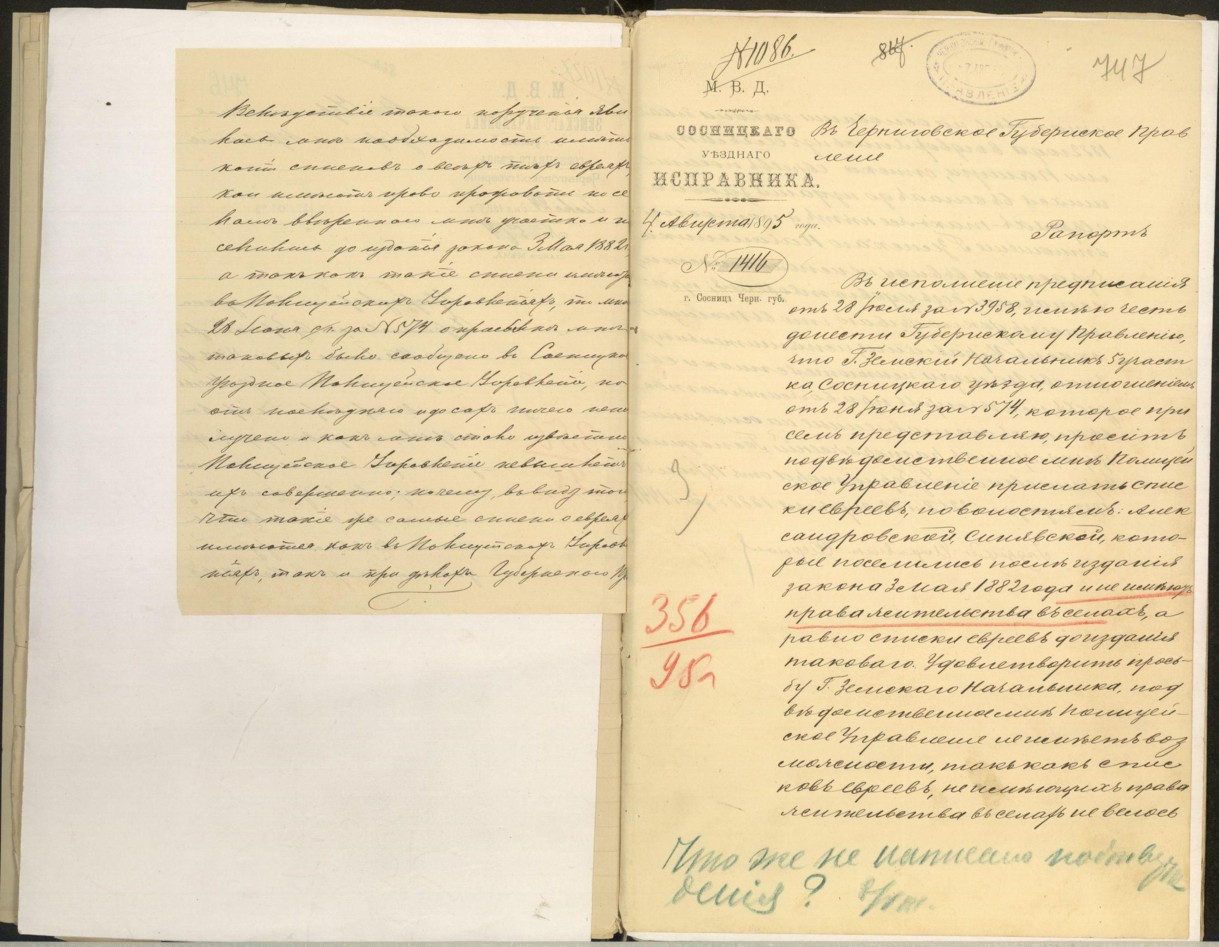 Вследствіе такого порученія яви
лась мнѣ необходимость имѣть
кой списковъ о всѣхъ тѣхъ евреяхъ,
кои имѣютъ право проживать по се
ламъ ввѣреннаго мнѣ участка и по
селились до изданія закона 3 Мая 1882 г.
а такъ какъ такіе списки имѣют
въ Полицейскихъ Управленіяхъ, то мно
28 Іюня с.г. за № 574 о присылкѣ мнѣ
таковыхъ было сообщено въ Сосницко
Уѣздное Полицейское Управленіе, но
отъ послѣдняго и до сихъ ничего непо
лучено и какъ мнѣ стало извѣстн
Полицейское Управленіе невышлетъ
ихъ совершенно; почему, ввиду того
что такіе же самые списки о евреях
имѣются какъ въ Полицейскихъ Управл
ніяхъ, такъ и при дѣлахъ Губернскаго П
№ 1086.
864
747
М. В. Д.
СОСНИЦКАГО
УѢЗДНАГО
ИСПРАВНИКА.
4 Августа 1895 года.
№ 1416
г. Сосница Черн. губ.
Въ Черниговское Губернское Прав
леніе
Рапортъ
Въ исполненіе предписанія
отъ 28 Іюля за № 3958, имѣю честь
донести Губернскому Правленію,
что Г. Земскій Начальникъ 5 участ
ка, Сосницкаго уѣзда, отношеніемъ
отъ 28 Іюня за № 574, которое при
семъ представляю, проситъ
подвѣдомственное мнѣ Полицей
ское Управленіе прислать спис
ки евреевъ, по волостямъ: Алек
сандровской, Синявской, кото-
рые поселились послѣ изданія
закона 3 Мая 1882 года и не имѣютъ
права жительства въ селахъ, а
равно списки евреевъ до изданія
таковаго. Удовлетворить прось-
бу Г. Земскаго Начальника, под
вѣдомственное мнѣ Полицей-
ское Управленіе не имѣетъ воз
можности, такъ какъ спис
ковъ евреевъ, не имѣющихъ права
жительства въ селахъ не велось
356
95
Что же не написано подтверж
денія?